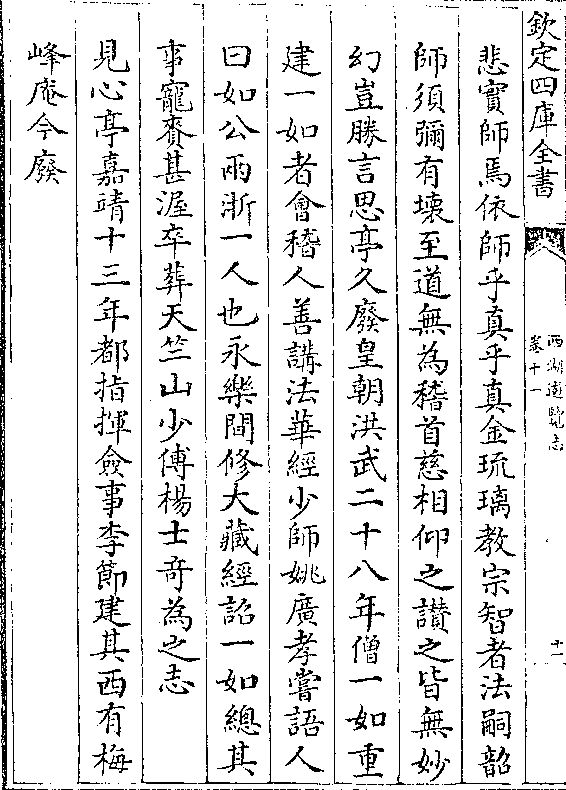 欽定四庫全書
西湖遊覽志
卷十一
十一
悲實師焉依師乎真乎真金琉璃教宗智者法嗣韶
師須彌有壊至道無為稽首慈相仰之讃之皆無妙
幻豈勝言思亭久廢皇朝洪武二十八年僧一如重
建一如者會稽人善講法華經少師姚廣孝嘗語人
曰如公兩浙一人也永樂間修大藏經詔一如總其
事寵賚甚渥卒葬天竺山少傅楊士奇為之志
見心亭嘉靖十三年都指揮僉事李節建其西有梅
峰庵今廢